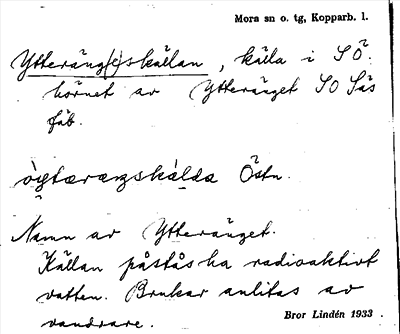 Mora sn o. tg, Kopparb. l.
Ytteräng(e)skällan, källa i SÖ.
hörnet av Ytteränget SO Säs
fäb.
Östn.
Namn av Ytteränget.
Källan påstås ha radioaktivt
vatten. Brukar anlitas av
vandrare.
Bror Lindén 1933.